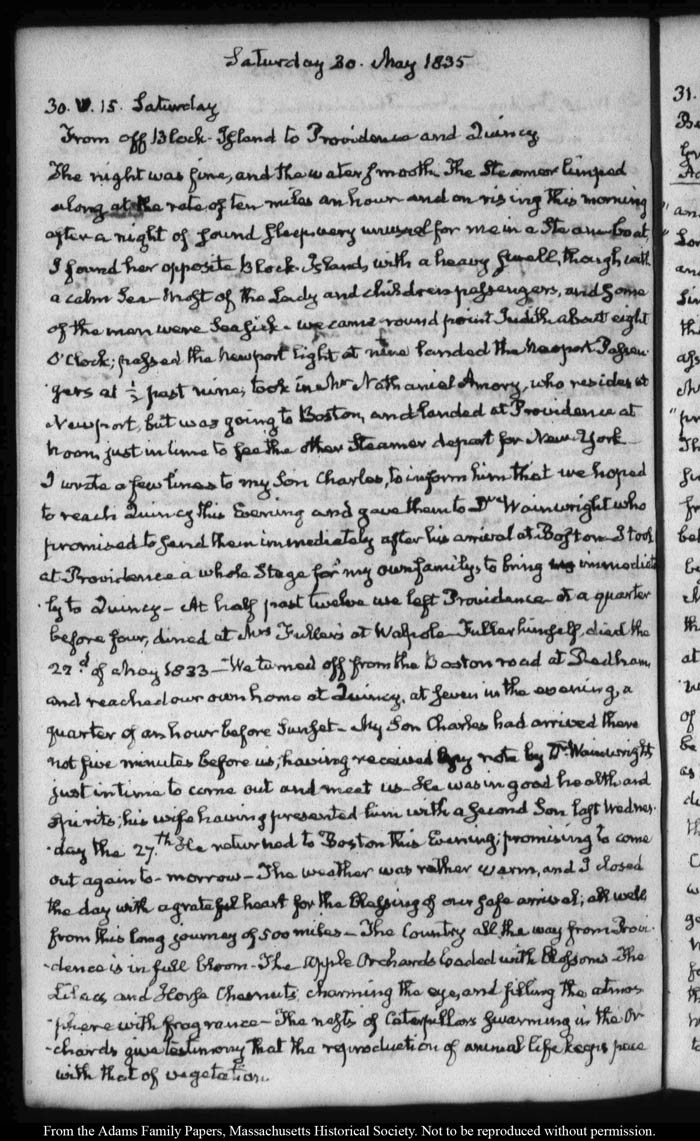 Saturday 30. May 1835
30. V. 15. Saturday
From off Block-Island to Providence and Quincy
The night was fine, and the water smooth. The Steamer limped
along at the rate of ten miles an hour and on rising this morning
after a night of sound sleep very unusual for me in a Steam-boat,
I found her opposite Block-Island, with a heavy swell, though with
a calm Sea- Most of the Lady and children passengers, and some
of the men were Seasick- we came round point Judith about eight
O'Clock; passed the Newport light at nine landed the Newport Passen-
gers at ½ past nine; took in Mr Nathaniel Amory, who resides at
Newport, but was going to Boston, and landed at Providence at
noon, just in time to see the other Steamer depart for New-York
I wrote a few lines to my Son Charles, to inform him that we hoped
to reach Quincy this Evening and gave them to Dr Wainwright who
promised to send them immediately after his arrival at Boston- I took
at Providence a whole Stage for my own family, to bring us immediate
ly to Quincy- At half past twelve we left Providence- at a quarter
before four, dined at Mrs Fuller's at Walpole- Fuller himself, died the
22d of May 1833- We turned off from the Boston road at Dedham,
and reached our own home at Quincy, at seven in the evening, a
quarter of an hour before Sunset- My Son Charles had arrived there
not five minutes before us; having received my note by Dr Wainwright,
just in time to come out and meet us- He was in good health and
spirits; his wife having presented him with a second Son last Wednes-
day the 27th. He returned to Boston this Evening; promising to come
out again to-morrow- The weather was rather warm, and I closed
the day with a grateful heart for the blessing of our safe arrival; all well
from this long journey of 500 miles- The Country all the way from Provi-
dence is in full bloom- The Apple Orchards loaded with blossoms- The
Lilacs and Horse Chesnuts, charming the eye, and filling the atmos-
phere with fragrance- The nests of Caterpillars swarming in the Or-
chards give testimony that the reproduction of animal life keeps pace
with that of vegetation.
31.
From the Adams Family Papers, Massachusetts Historical Society. Not to be reproduced without permission.